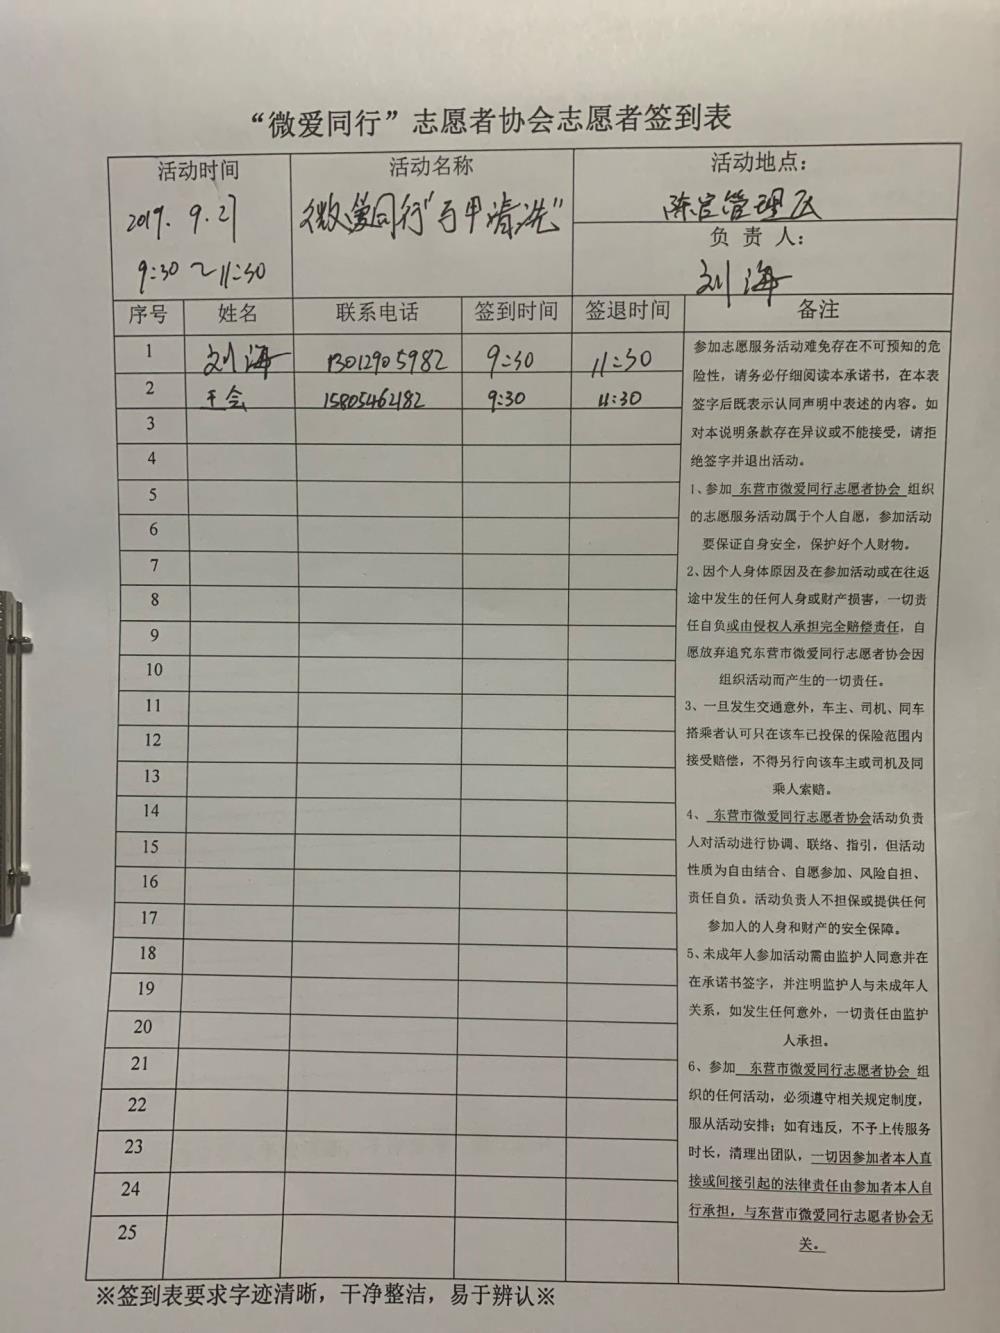 “微爱同行”志愿者协会志愿者签到表
活动时间
2019. 9.27
9:30 ～11:30
活动名称
微爱同行"马甲清洗"
活动地点：
陈官管理区
负 责 人：
刘海
序号 姓名 联系电话 签到时间 签退时间 备注
1 刘海 13012905982 9:30 11:30
2 王会 15805462182 9:30 11:30
3
4
5
6
7
8
9
10
11
12
13
14
15
16
17
18
19
20
21
22
23
24
25
参加志愿服务活动难免存在不可预知的危
险性，请务必仔细阅读本承诺书，在本表
签字后既表示认同声明中表述的内容。如
对本说明条款存在异议或不能接受，请拒
绝签字并退出活动。
1、参加 东营市微爱同行志愿者协会 组织
的志愿服务活动属于个人自愿，参加活动
要保证自身安全，保护好个人财物。
2、因个人身体原因及在参加活动或在往返
途中发生的任何人身或财产损害，一切责
任自负或由侵权人承担完全赔偿责任，自
愿放弃追究东营市微爱同行志愿者协会因
组织活动而产生的一切责任。
3、一旦发生交通意外，车主、司机、同车
搭乘者认可只在该车已投保的保险范围内
接受赔偿，不得另行向该车主或司机及同
乘人索赔。
4、 东营市微爱同行志愿者协会活动负责
人对活动进行协调、联络、指引，但活动
性质为自由结合、自愿参加、风险自担、
责任自负。活动负责人不担保或提供任何
参加人的人身和财产的安全保障。
5、未成年人参加活动需由监护人同意并在
在承诺书签字，并注明监护人与未成年人
关系，如发生任何意外，一切责任由监护
人承担。
6、参加 东营市微爱同行志愿者协会 组
织的任何活动，必须遵守相关规定制度，
服从活动安排；如有违反，不予上传服务
时长，清理出团队，一切因参加者本人直
接或间接引起的法律责任由参加者本人自
行承担，与东营市微爱同行志愿者协会无
关。
※签到表要求字迹清晰，干净整洁，易于辨认※